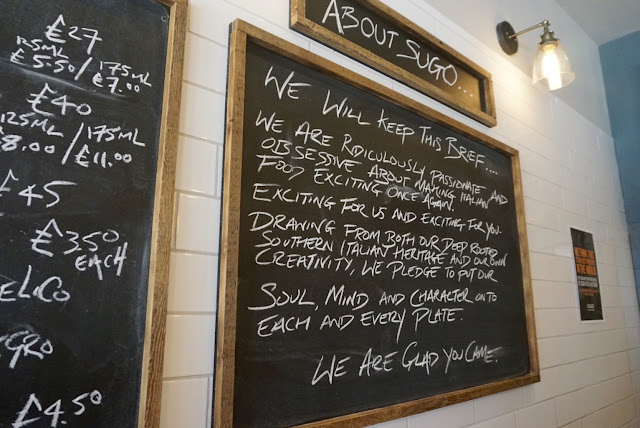 £27
125ML
£5.50/175ML
£7.00
£40
125ML
£8.00/175ML
£11.00
£45
£3.50
EACH
£4.50
ABOUT SUGO...
WE WILL KEEP THIS BRIEF....
WE ARE RIDICULOUSLY PASSIONATE AND
OBSESSIVE ABOUT MAKING ITALIAN
FOOD EXCITING ONCE AGAIN.
EXCITING FOR US AND EXCITING FOR YOU.
DRAWING FROM BOTH OUR DEEP ROOTED
SOUTHERN ITALIAN HERITAGE AND OUR OWN
CREATIVITY, WE PLEDGE TO PUT OUR
SOUL, MIND AND CHARACTER ON TO
EACH AND EVERY PLATE.
WE ARE GLAD YOU CAME.